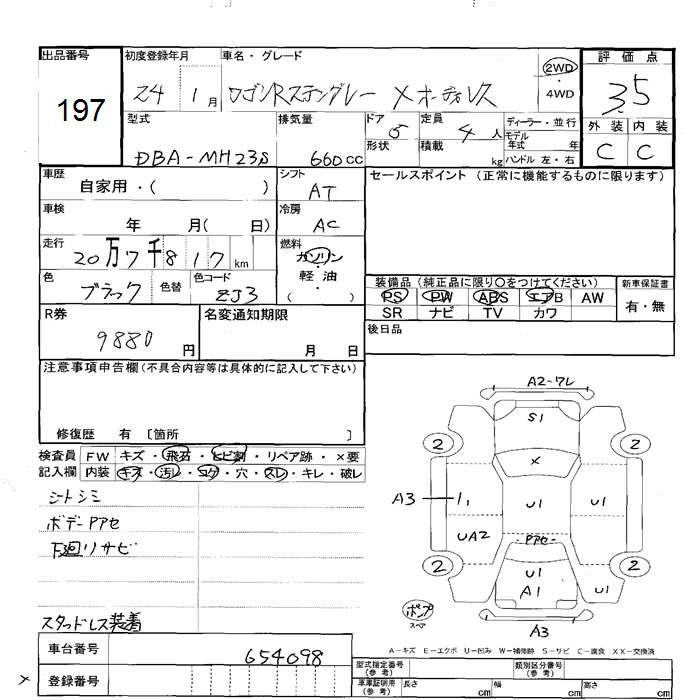 出品番号 初度登録年月 車名・グレード 評価点
197 24 1月 ワゴンRスティングレー X 2WD・4WD 3.5
型式 排気量 ドア 5 定員 4人 ディーラー・並行 外装 内装
DBA-MH23S 660cc 形状 積載 kg モデル年式 年 C C
ハンドル 左・右
車歴 自家用・( ) シフト AT セールスポイント (正常に機能するものに限ります)
車検 年 月( 日) 冷房 AC
走行 20万7千817km 燃料 ガソリン・軽油・( )
色 ブラック 色替 色コード ZJ3
装備品(純正品に限り○をつけてください) 新車保証書
PS PW ABS エアB AW 有・無
SR ナビ TV カワ
R券 9880円 名変通知期限 月 日 後日品
注意事項申告欄(不具合内容等は具体的に記入して下さい)
修復歴 有 〔箇所 〕
検査員 FW キズ・飛石・ヒビ割・リペア跡・×要
記入欄 内装 キズ・汚レ・コゲ・穴・スレ・キレ・破レ
シートシミ
ボデーアアセ
下廻リサビ
スタッドレス装着
A2-ワレ
S1
2 2
X
A3 1 U1 U1
UA2 -アアセ-
2 2
U1 U1
A1
ポンプ
スペア
A3
A-キズ E-エクボ U-凹み W-補修跡 S-サビ C-腐食 XX-交換済
車台番号 654098
登録番号
型式指定番号(参考) 類別区分番号(参考)
車庫証明用(参考) 長さ cm 幅 cm 高さ cm